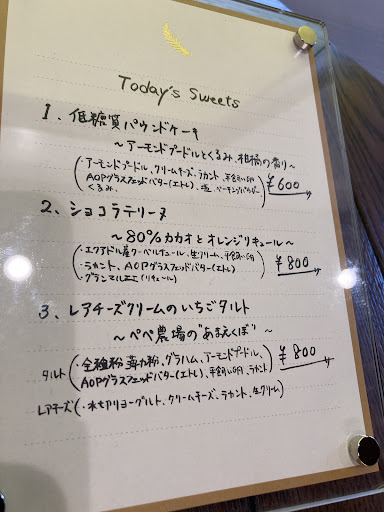 Today's Sweets
1、低糖質パウンドケーキ
～アーモンドプードルとくるみ、柑橘の香り～
(・アーモンドプードル、クリームチーズ、ラカント、平飼い卵
AOPグラスフェッドバター(エトレ)、塩、ベーキングパウダー
くるみ、)
¥600
2、ショコラテリーヌ
～80%カカオとオレンジリキュール～
(・エクアドル産クーベルチュール、生クリーム、平飼い卵
・ラカント、AOPグラスフェッドバター(エトレ)
・グランマルニエ(リキュール))
¥800
3、レアチーズクリームのいちごタルト
～ペペ農場の"あまえくぼ"～
タルト(・全粒粉薄力粉、グラハム、アーモンドプードル、
AOPグラスフェッドバター(エトレ)、平飼い卵、ラカント)
¥800
レアチーズ(・水切りヨーグルト、クリームチーズ、ラカント、生クリーム)